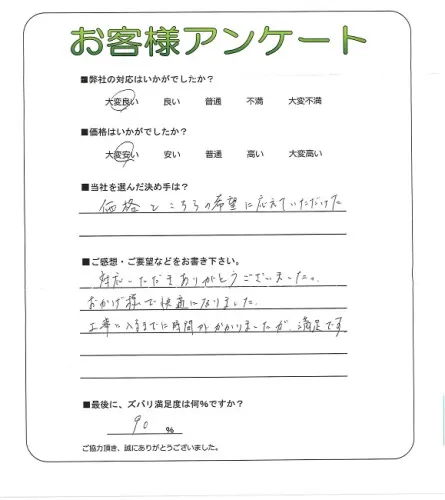 お客様アンケート
■弊社の対応はいかがでしたか？
大変良い 良い 普通 不満 大変不満
■価格はいかがでしたか？
大変安い 安い 普通 高い 大変高い
■当社を選んだ決め手は？
価格とこちらの希望に応えていただけた
■ご感想・ご要望などをお書き下さい。
対応いただきありがとうございました。
おかげ様で快適になりました。
工事に入るまでに時間がかかりましたが、満足です
■最後に、ズバリ満足度は何%ですか？
90 %
ご協力頂き、誠にありがとうございました。